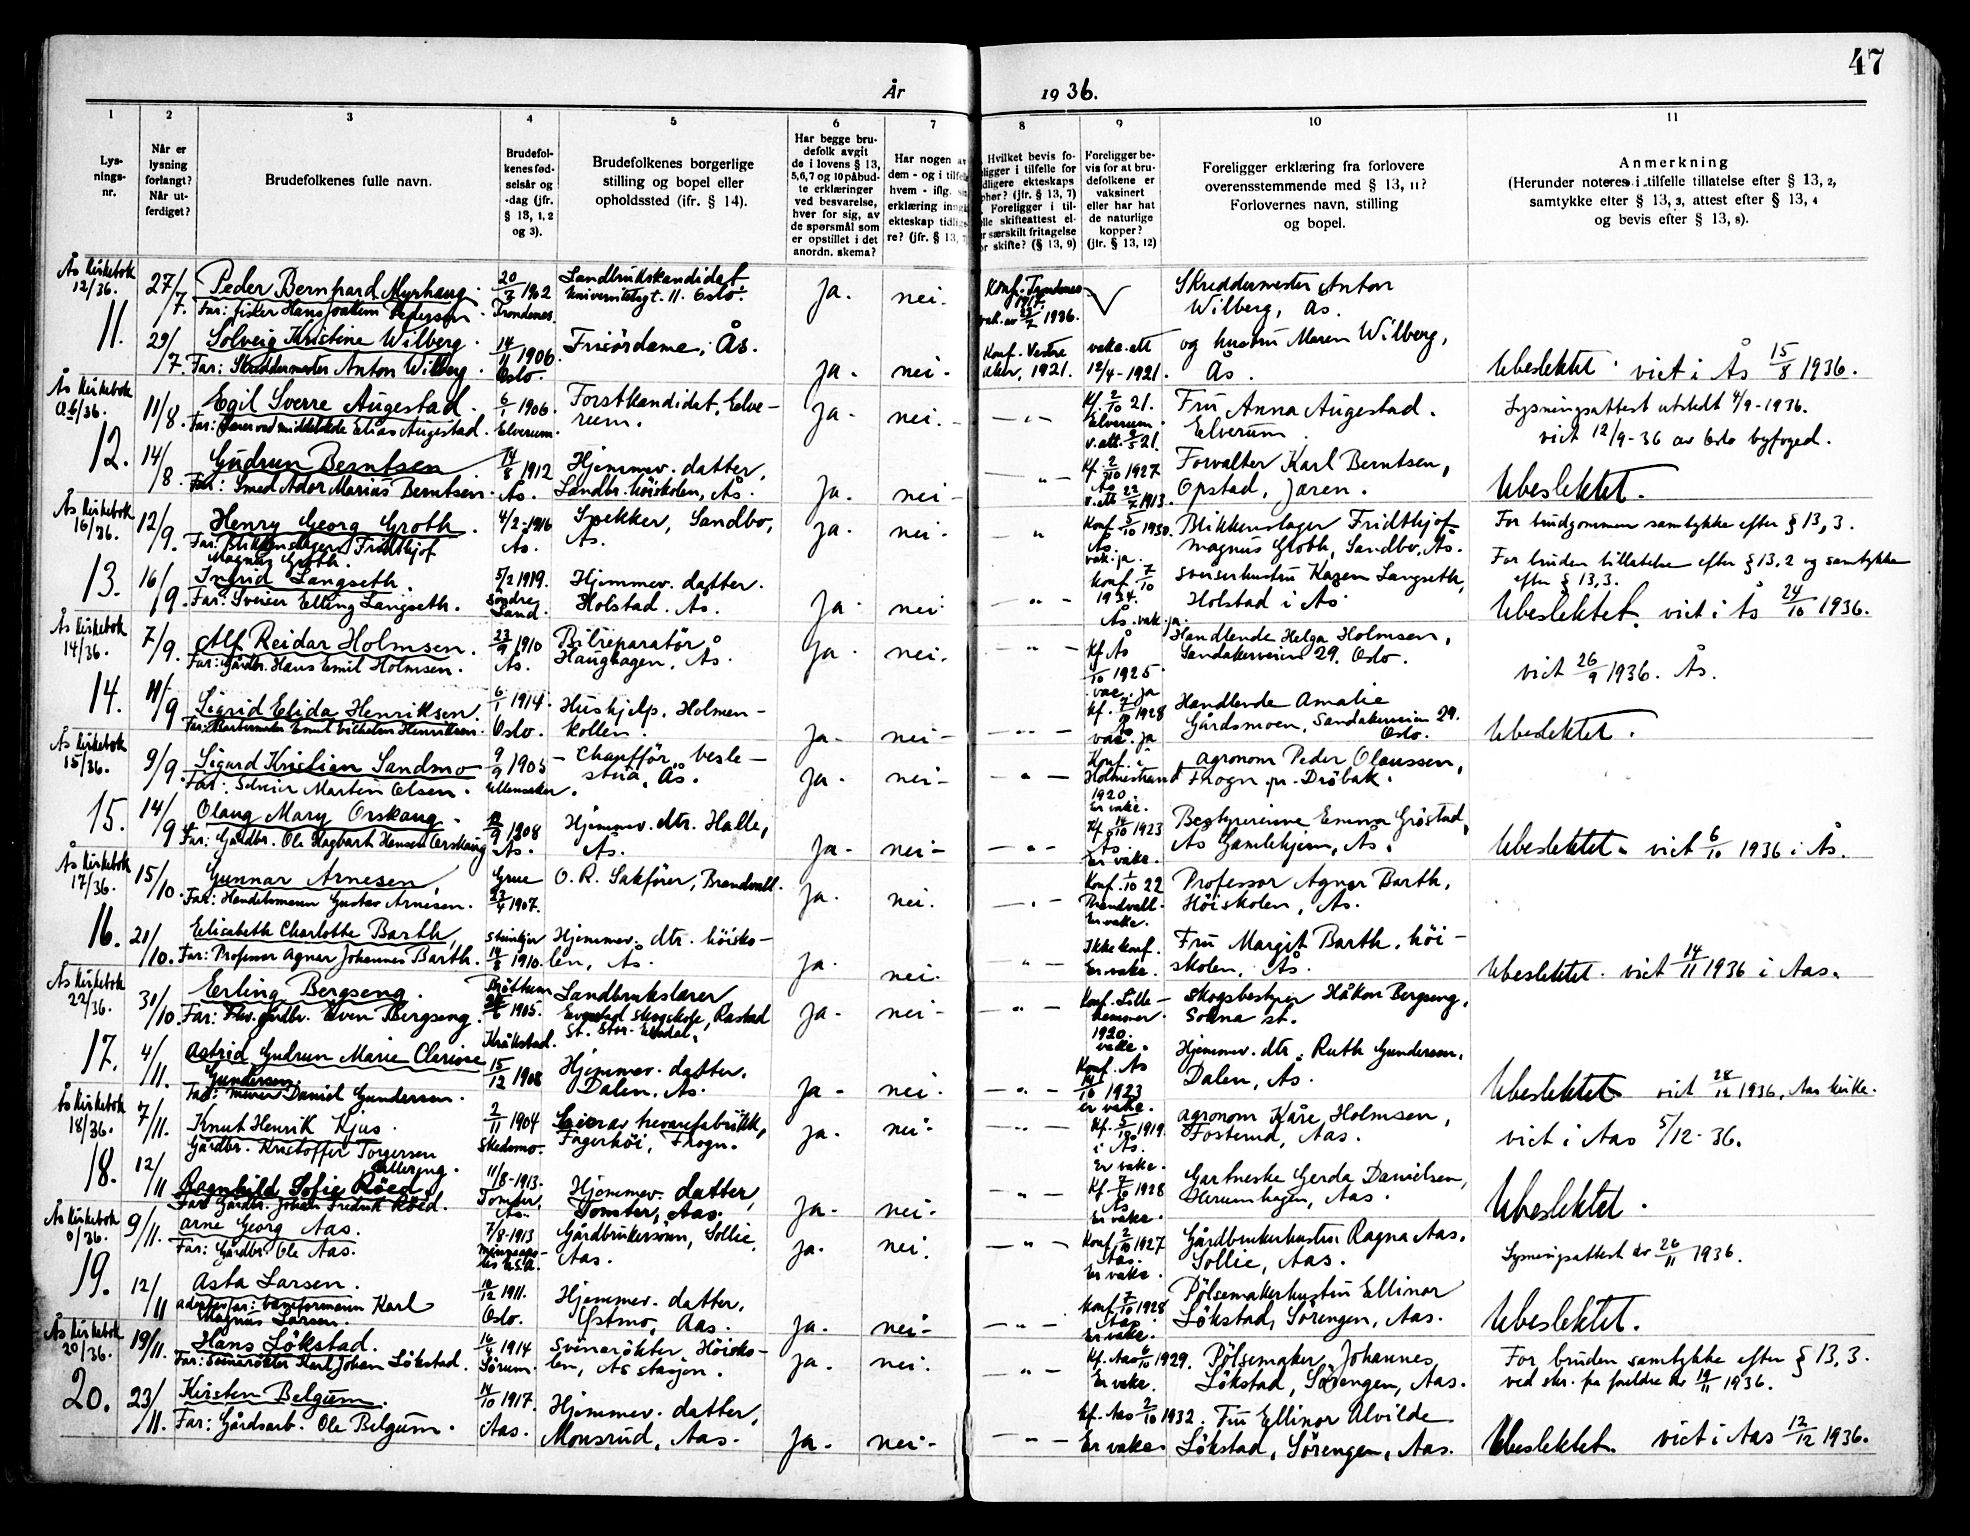 47
År
1936.
1
2
3
4
5
6
7
8
9
10
11
Lys-
nings-
nr.
Når er
lysning
forlangt?
Når ut-
ferdiget?
Brudefolkenes fulle navn.
Brudefol-
kenes fød-
selsår og
-dag (jfr.
§ 13, 1, 2
og 3).
Brudefolkenes borgerlige
stilling og bopel eller
opholdssted (ifr. § 14).
Har begge bru-
defolk avgit
de i lovens § 13,
5,6,7 og 10 påbud-
te erklæringer
ved besvarelse,
hver for sig, av
de spørsmål som
er opstillet i det
anordn. skema?
Har nogen av
dem - og i tilfelle
hvem - iflg. sin
erklæring inngå
ekteskap tidlig
re? (jfr. § 13, 7
Hvilket bevis fo-
religger i tilfelle for
tidligere ekteskaps
ophør? (jfr. § 13, 7)
Foreligger i til-
felle skifteattest el-
særskilt fritagelse
for skifte? (§ 13, 9)
Foreligger be-
vis for at bru-
defolkene er
vaksinert
eller har hat
de naturlige
kopper?
(jfr. § 13, 12)
Foreligger erklæring fra forlovere
overensstemmende med § 13, 11?
Forlovernes navn, stilling
og bopel.
Anmerkning
(Herunder noteres i tilfelle tillatelse efter § 13, 2,
samtykke efter § 13, 3, attest efter § 13, 4
og bevis efter § 13, 8).
Ås Kirkebok
12/36.
11.
27/7.
Peder Bernhard Myrhaug.
Far: fisker Hans Joakim Pedersen
20/3 1902
Trondenes.
Landbrukskandidat,
Universitetsgt. 11. Oslo.
ja.
nei.
Konf. Trondenes
1917.
vak. av 22/7 1936.
Skreddermester Anton
Wilberg, Ås.
29/7.
Solveig Kristine Wilberg.
Far: Skreddermester Anton Wilberg.
14/11 1906.
Oslo.
Frisördame, Ås.
ja.
nei.
Konf. Vestre
Aker, 1921.
vaks. att
12/4-1921.
og hustru Maren Wilberg,
Ås.
Ubeslektet. viet i Ås 15/8 1936.
Ås Kirkebok
12.
11/8.
Egil Sverre Augestad.
Elias Augestad.
6/1 1906.
Elverum.
Forstkandidat, Elve-
rum.
ja.
nei.
Kf. 2/10 21.
Elverum.
v. att. 21.
Fru Anna Augestad.
Elverum.
Lysningsattest utstedt 4/9-1936.
viet 12/9-36 av Oslo byfoged.
14/8.
Gudrun Berntsen
Far: Smed Ador Marius Berntsen.
14/8 1912
Ås.
Hjemmev. datter,
Landbr. höiskolen, Ås.
ja.
nei.
Kf. 2/10 1927
Ås
v. att 22/7 1913.
Forvalter Karl Berntsen,
Opstad, Jæren.
Ubeslektet.
Ås Kirkebok
16/36.
13.
12/9.
Henry Georg Groth.
Far: Blikkenslager Fridthjof
Magnus Groth.
4/2-1916
Ås.
Spekker, Sandbo,
Ås.
ja.
nei.
Konf. 5/10 1930.
Ås.
vak. ja.
Blikkenslager Fridthjof
Magnus Groth, Sandbo, Ås.
For brudgommen samtykke efter § 13, 3.
16/9.
Ingrid Langseth.
Far: Sveiser Elling Langseth.
5/2 1919.
Söndre
Land.
Hjemmev. datter.
Holstad. Ås.
ja.
nei.
Konf. 7/10
1934.
Ås. vak. ja.
Sveiserhustru Karen Langseth,
Holstad i Ås
For bruden tillatelse efter § 13, 2 og samtykke
efter § 13, 3.
Ubeslektet. viet i Ås 24/10 1936.
Ås Kirkebok
14/36.
14.
7/9.
Alf Reidar Holmsen.
Far: Gårdbr. Hans Emil Holmsen.
23/9 1910
Ås.
Bilreparatör
Haughagen, Ås.
ja.
nei.
Kf. Ås
/10 1925
vac. ja
Handlende Helga Holmsen,
Sandakerveien 29, Oslo.
viet 26/9 1936. Ås.
11/9
Sigrid Elida Henriksen.
Emil Vilhelm Henriksen.
6/1 1914.
Oslo.
Hushjelp. Holmen-
kollen.
ja.
nei.
Kf. 7/10 1928
vac. ja
Handlende Amalie
Gårdsmoen, Sandakerveien 29.
Oslo.
Ubeslektet.
Ås Kirkebok
15/36.
15.
9/9.
Sigurd Kristian Sandmo
Far: Sveiser Martin Olsen.
9/9 1905
Ullensaker.
Chauffør, Vesle-
stua, Ås.
ja.
nei.
Konf. i
Holmestrand
1920.
Er vaks.
Agronom Peder Olaussen,
Frogn pr. Dröbak.
14/9
Olaug Mary Orskaug.
Far: Gårdbr. Ole Hagbart Hansen Orskaug
/9 1908
Ås.
Hjemmev. dtr. Halle,
Ås.
ja.
nei.
Kf. 14/10 1923
Ås.
Er vaks.
Bestyrerinne Emma Gröstad,
Ås Gamlehjem, Ås.
Ubeslektet. viet 6/10 1936 i Ås.
Ås Kirkebok
17/36.
16.
15/10.
Gunnar Arnesen,
Far: Handelsmann Gustav Arnesen.
Grue
23/4 1907.
O. R. Sakförer, Brandvall.
ja.
nei.
Konf. 1/10 22
Brandvall.
Er vaks.
Professor Agnar Barth,
Höiskolen, Ås.
21/10.
Elisabeth Charlotte Barth,
Far: Professor Agnar Johannes Barth.
Steinkjer
14/8 1910.
Hjemmev. dtr. höisko-
len, Ås.
ja.
nei.
Ikke konf.
Er vaks.
Fru Margit Barth, höi-
skolen, Ås.
Ubeslektet. viet 14/11 1936 i Aas.
Ås Kirkebok
22/36.
17.
31/10.
Erling Bergseng.
Even Bergseng.
1905.
Landbrukslærer
Evenstad skogskole, Rasta
St. Stor-Elvdal.
ja.
nei.
Konf. Lille-
hammer.
1920.
vaks.
Skogsbestyrer Håkon Bergseng,
Sokna st.
4/11.
Astrid Gudrun Marie Clarisse
Gundersen.
Far: Murer Daniel Gundersen.
Kråkstad.
15/12 1908
Hjemmev. datter.
Dalen, Ås.
ja.
nei.
Konf. Ås
14/10 1923
er vaks.
Hjemmev. dtr. Ruth Gundersen,
Dalen, Ås.
Ubeslektet viet 28/12 1936, Aas kirke.
Ås Kirkebok
18/36.
18.
7/11.
Knut Henrik Kjus.
Gårdbr. Kristoffer Torgersen
2/11 1904
Skedsmo.
Eier av trevarefabrikk,
Fagerhöi, Frogn.
ja.
nei.
Kf. 5/10 1919.
i Ås.
Er vaks.
Agronom Kåre Holmsen,
Fosterud, Aas.
viet i Aas 5/12-36.
12/11
Ragnhild Sofie Röed.
Far: Gårdbr. Johan Fredrik Röed.
11/8-1913.
Tomter,
Ås.
Hjemmev. datter,
Tomter, Aas.
ja.
nei.
Kf. 7/10 1928
Ås
Er vaks.
Gartneske Gerda Danielsen,
Herumhagen, Aas.
Ubeslektet.
Ås Kirkebok
19.
9/11.
Arne Georg Aas.
Far: Gårdbr. Ole Aas.
7/8-1913
Minneapo-
lis U.S.A.
Gårdbrukersönn, Sollie,
Aas.
ja.
nei.
Konf. 2/10 1927
Aas.
Er vaks.
Gårdbrukerhustru Ragna Aas,
Sollie, Aas.
Lysningsattest av 26/11 1936.
12/11
Asta Larsen.
adoptivfar: banformann Karl
Magnus Larsen.
/12 1911.
Oslo.
Hjemmev. datter,
Østmo, Aas.
ja.
nei.
Konf. 7/10 1928
Aas.
Er vaks.
Pölsemakerhustru Ellinor
Lökstad, Sörengen, Aas.
Ubeslektet.
Ås Kirkebok
20/36.
20.
19/11.
Hans Lökstad.
Far: Svinerökter Karl Johan Lökstad.
16/4 1914
Sörum.
Svinerökter, Höisko-
len, Ås stasjon.
ja.
nei.
Kf. Aas 6/10 1929.
Er vaks.
Pölsemaker Johannes
Lökstad, Sörengen, Aas.
For bruden samtykke efter § 13, 3.
ved skr. fra foreldre av 19/11 1936.
23/11.
Kirsten Belgum.
Far: Gårdsarb. Ole Belgum.
14/10 1917.
Aas.
Hjemmev. datter,
Monsrud, Aas.
ja.
nei.
Kf. Aas 2/10 1932.
Er vaks.
Fru Ellinor Alvilde
Lökstad, Sörengen, Aas.
Ubeslektet. viet i Aas 12/12 1936.